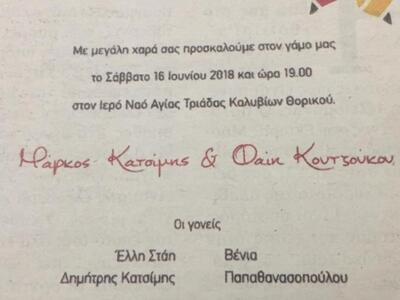 Με μεγάλη χαρά σας προσκαλούμε στον γάμο μας
το Σάββατο 16 Ιουνίου 2018 και ώρα 19.00
στον Ιερό Ναό Αγίας Τριάδας Καλυβίων Θορικού.
Μάρκος Κατσίμης & Φαίη Κουτσούκου
Οι γονείς
Έλλη Στάη Βένια
Δημήτρης Κατσίμης Παπαθανασοπούλου